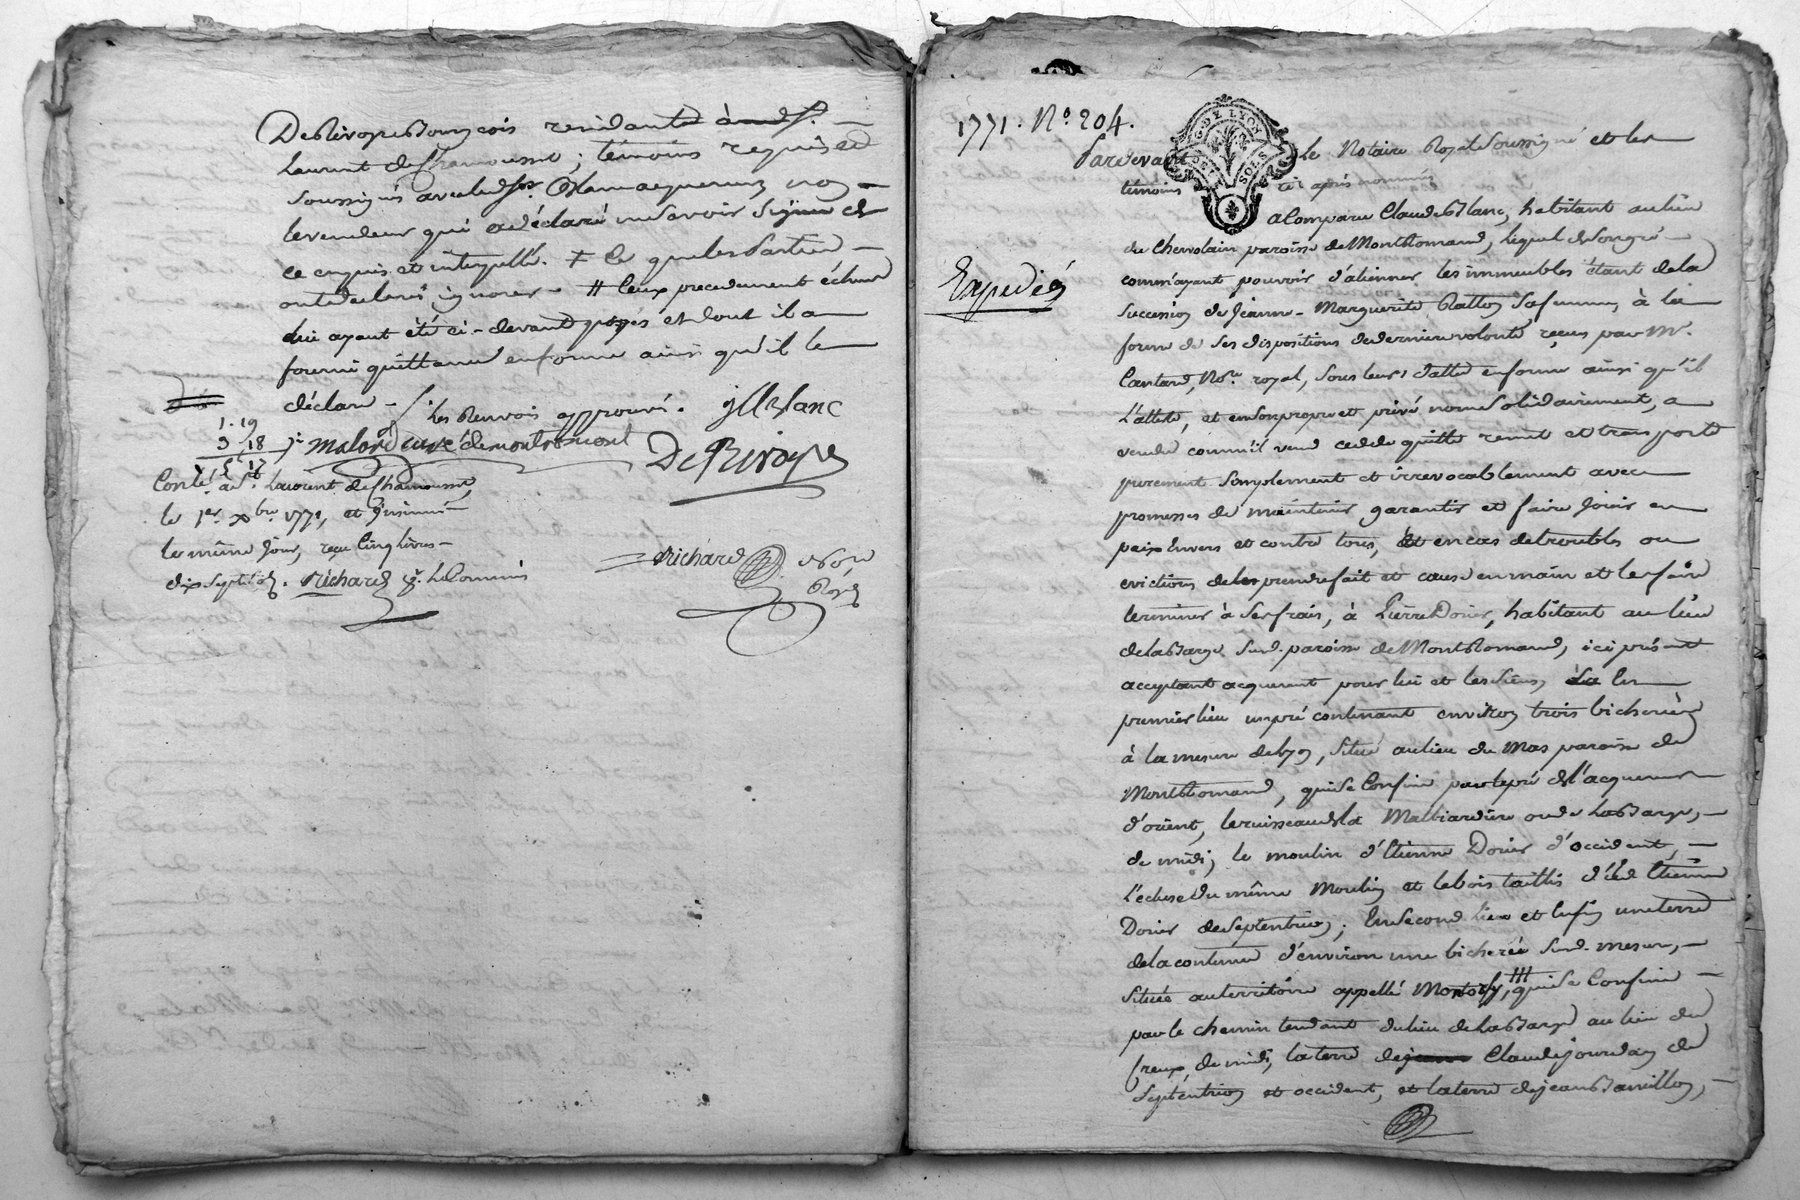 De Rivoyre Bourgeois residant
Laurent de Chamousset; témoins requis et
soussignés avec led. sr. Blanc acquereur, non
le vendeur qui a déclaré ne savoir signer de
ce enquis et interpellé. # ce que les Parties
ont declaré ignorer # ceux precedemment échus
lui ayant été ci-devant payés et dont il a
fourni quittance en forme ainsi qu'il le
déclare. Les Renvois approuvés. JM Blanc
1. 19
3. 18
5. 17
Malord curé de montromant
De Rivoyre
Contlé. à St. Laurent de Chamousset,
le 1er. xbre. 1771, et Insinué
le même jour, reçu Cinq livres
dix sept sols. Richard pr. le Commis
Richard Nore. Royal
1771. No. 204.
G. DE LYON
DEUX SOLS
Pardevant Le Notaire Royal Soussigné et les
témoins ci après nommés
a Comparu Claude Blanc, habitant au lieu
du Chevolain paroisse de Montromand, lequel de son gré
Expediée
comm'ayant pouvoir d'aliener les immeubles étant de la
succession de Jeanne-Marguerite Ratton sa femme, à la
forme de ses dispositions de derniere volonté reçus par Me.
Cantard, Nore. royal, sous leurs datte en forme ainsi qu'il
l'atteste, et en son propre et privé nom solidairement, a
vendu comm'il vend cede quitte remet et transporte
purement simplement et irrevocablement avec
promesses de maintenir garantir et faire jouir en
paix envers et contre tous, et en cas de troubles ou
evictions de les prendre fait et cause en main et les faire
terminer à ses frais, à Pierre Dorier, habitant au lieu
de la Barge susd. paroisse de Montromand, ici présent
acceptant acquerant pour lui et les siens, En
premier lieu un pré contenant environ trois bicherées
à la mesure de Lyon, situé au lieu du Mas paroisse de
Montromand, qui se Confine par le pré de l'acquereur
d'orient, le ruisseau de la Malliardiere ou de la Barge,
de midi, le moulin d'Etienne Dorier d'occident,
l'écluse du même Moulin et le bois taillis dud. Etienne
Dorier de septentrion; En second lieu et enfin une terre
de la contenue d'environ une bicherée susd. mesure,
située au territoire appellé qui se Confine
par le chemin tendant du lieu de la Barge au lieu du
freux, de midi, la terre de Claude Jourdan de
septentrion et occident, et la terre de Jean Bamillon,